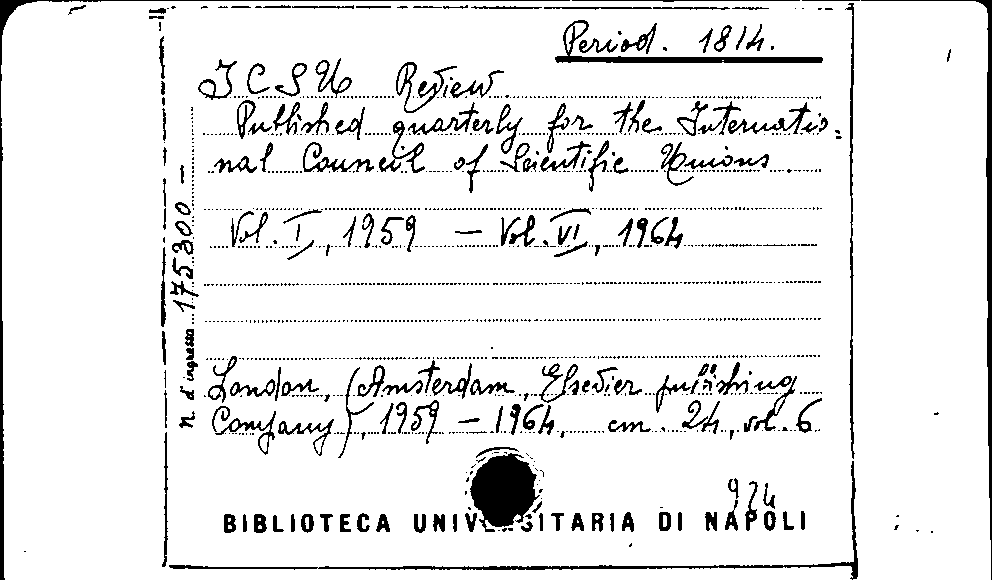 Period. 1814.
I C S U Review.
Published quarterly for the Internatio=
nal Council of Scientific Unions.
Vol. I, 1959 — Vol. VI, 1964
n. d'ingresso 175300 —
London, (Amsterdam, Elsevier publishing
Company), 1959 — 1964, cm. 24, vol. 6
924
BIBLIOTECA UNIVERSITARIA DI NAPOLI